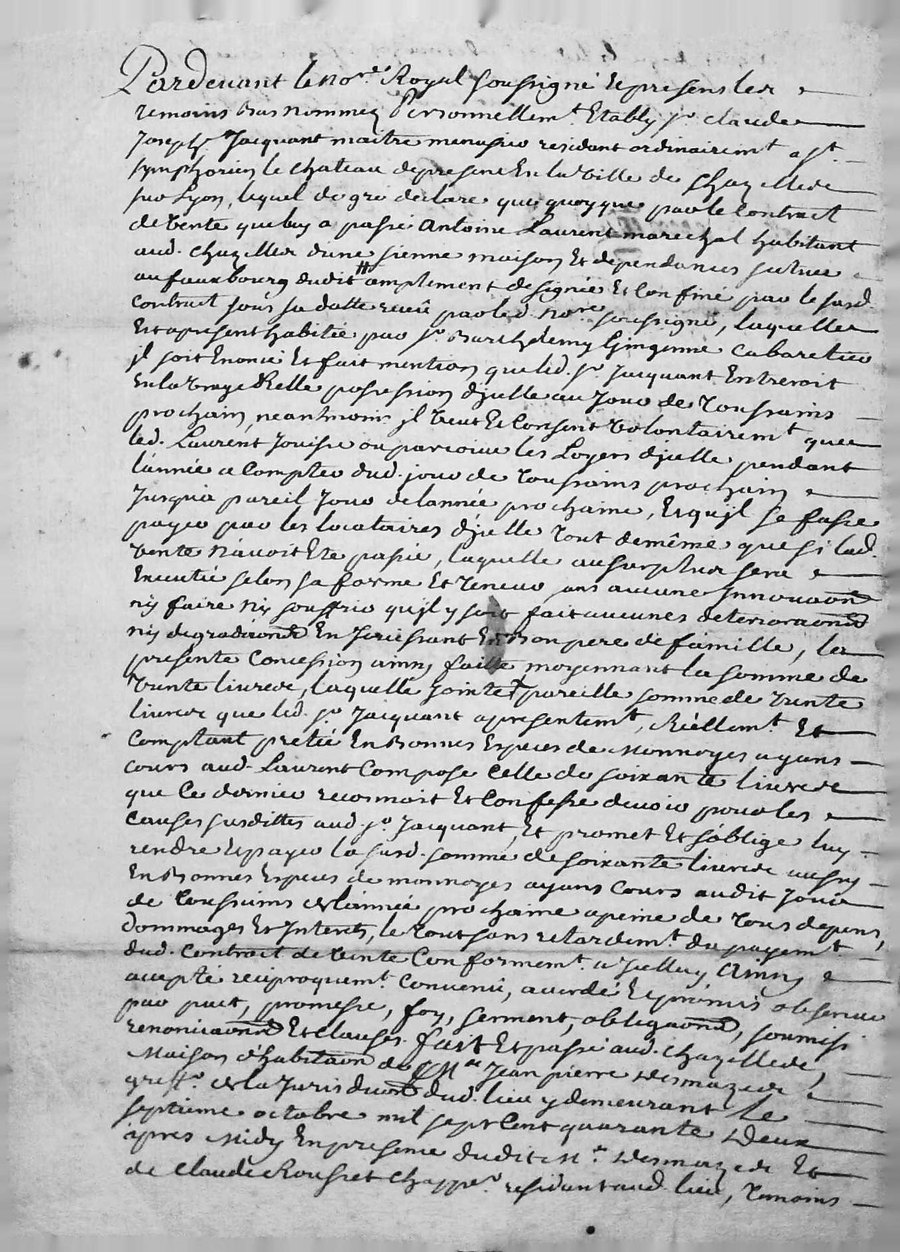 Pardevant le no.re Royal soussigné et presens les
temoins bas nommez Personnellem.t Etably s.r claude
Joseph Jacquant maitre menusier residant ordinairem.t a s.t
symphorien le chateau de present En la ville de Chazelles
sur Lyon, lequel de gré declare que quoyque par le Contract
de vente que luy a passé Antoine Laurent marechal habitant
aud. chazelles d'une sienne maison Et dependances scituee
au fauxbourg dudit amplement designée Et confiné par le susd.
Contract sous sa datte receû par led. no.re soussigné, laquelle
Est apresent habitée par s.r Barthelemy Gingenne cabaretier
il soit Enoncé Et fait mention que led. s.r Jacquant Entreroit
En la vraye & relle possession d'jcelle au Jour de Toussains
prochain, neantmoins il veut Et Consent volontairem.t que
led. Laurent Jouisse ou percoive les Loyers d'jcelle pendant
l'année a compter dud. jour de Toussains prochain
Jusqu'a pareil Jour de l'année prochaine, Et qu'jl se fasse
payer par les locataires d'jcelle tout de même que si lad.
vente n'avoit Eté passée, laquelle au surplus sera
Executée selon sa forme Et teneur sans aucune Innovaõn
ny faire ny souffrir qu'jl y soit fait aucunes deterioraõns
ny degradaõns En Jouissant En bon pere de famille, la
presente Concession ainsy faitte moyennant la somme de
trente livres, laquelle jointe a pareille somme de trente
livres que led. s.r Jacquant a presentem.t, Réellem.t Et
Comptant prêtée En bonnes Especes de Monnoyes ayans
cours aud. Laurent Compose celle de soixante livres
que Ce dernier reconnoit Et Confesse devoir pour les
causes susdittes aud. s.r Jacquant, Et promet Et s'oblige luy
rendre Et payer la susd. somme de soixante livres aussy
En bonnes Especes de monnoyes ayans cours audit Jour
de Toussains de l'année prochaine a peine de tous depens,
dommages Et Interets, le tout sans retardem.t du payem.t
dud. Contract de vente Conformem.t a Jcelluy Ainsy
accepté reciproquem.t Convenu, accordé Et promis observer
par pact, promesse, foy, serment, obligaõns, soumis.
renonciaõns Et clauses. fait Et passé aud. chazelles,
Maison d'habitaõn de M.re Jean pierre Desmazes
greff.r de la Jurisdicõn dud. lieu y demeurant le
septième octobre mil sept cent quarante Deux
après Midy En presence dudit M.re Desmazes Et
de Claude Rousset Chapp.r residant aud. lieu, temoins